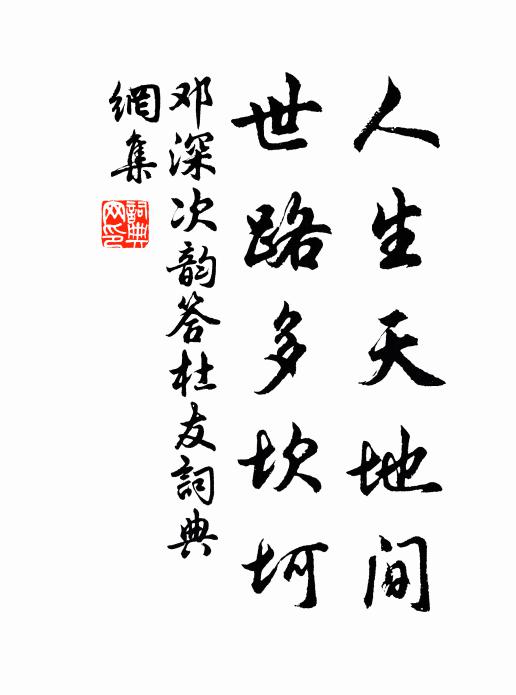 人生天地间
世路多坎坷
邓深次韵答杜友詞典
網集
詞典
网印